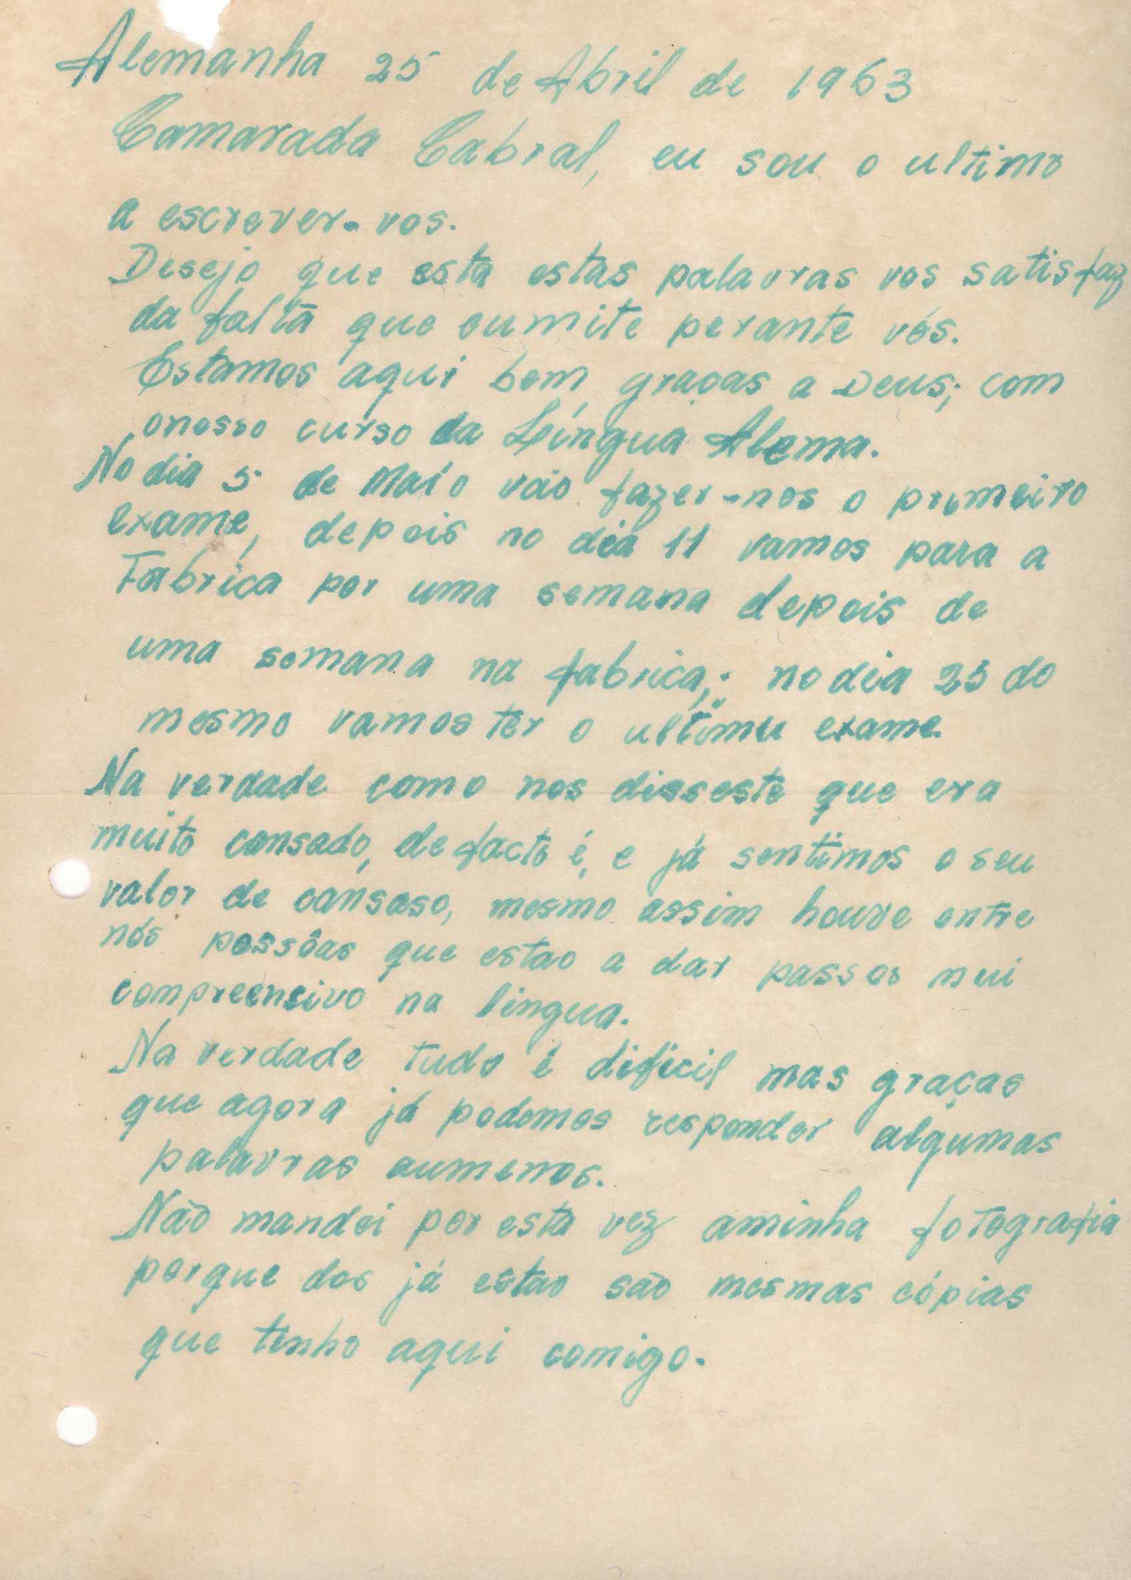 Alemanha 25 de Abril de 1963
Camarada Cabral, eu sou o ultimo
a escrever-vos.
Desejo que esta estas palavras vos satisfaz
da falta que eumite perante vós.
Estamos aqui bem graças a Deus; com
onosso curso da Língua Alema.
No dia 5 de Maio vão fazer-nos o primeiro
exame, depois no dia 11 vamos para a
Fabrica por uma semana depois de
uma semana na fabrica, no dia 25 do
mesmo vamos ter o ultimu exame.
Na verdade como nos disseste que era
muito cansado, de facto é, e já sentimos o seu
valor de cansaso, mesmo assim houve entre
nós pessôas que estao a dar passos mui
compreensivo na lingua.
Na verdade tudo é dificil mas graças
que agora já podemos responder algumas
palavras aumenos.
Não mandei por esta vez aminha fotografia
porque dos já estao são mesmas cópias
que tenho aqui comigo.